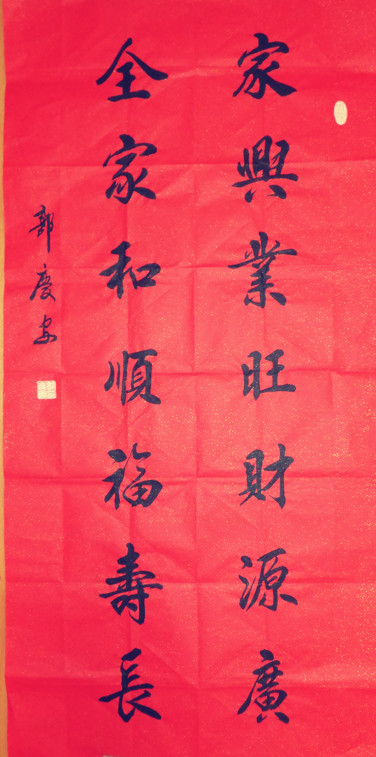 家興業旺財源廣
全家和順福壽長
郭慶安